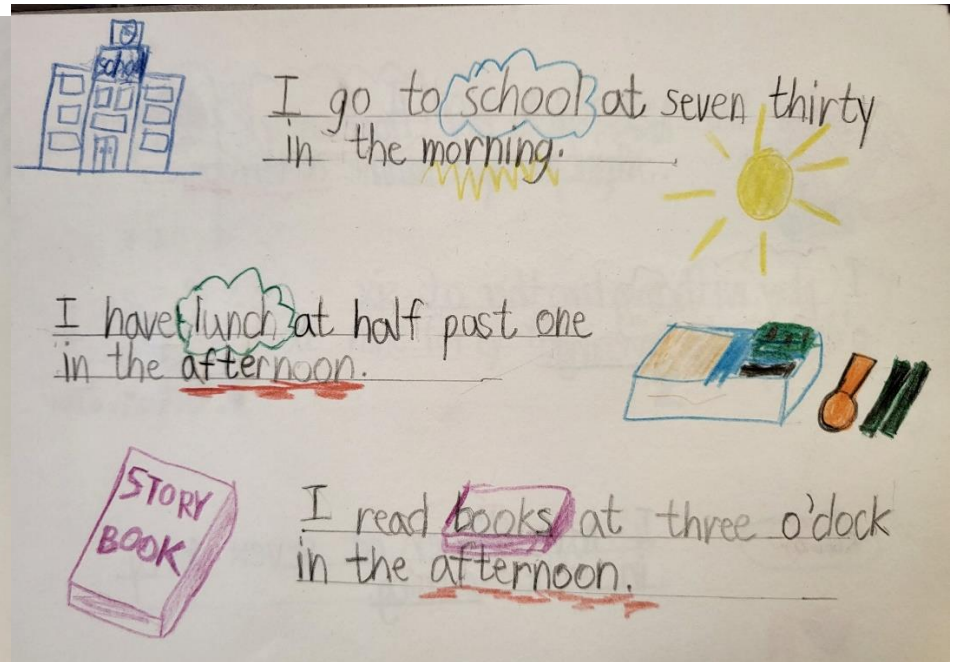 school
I go to school at seven thirty
in the morning.
I have lunch at half past one
in the afternoon.
STORY
BOOK
I read books at three o'clock
in the afternoon.